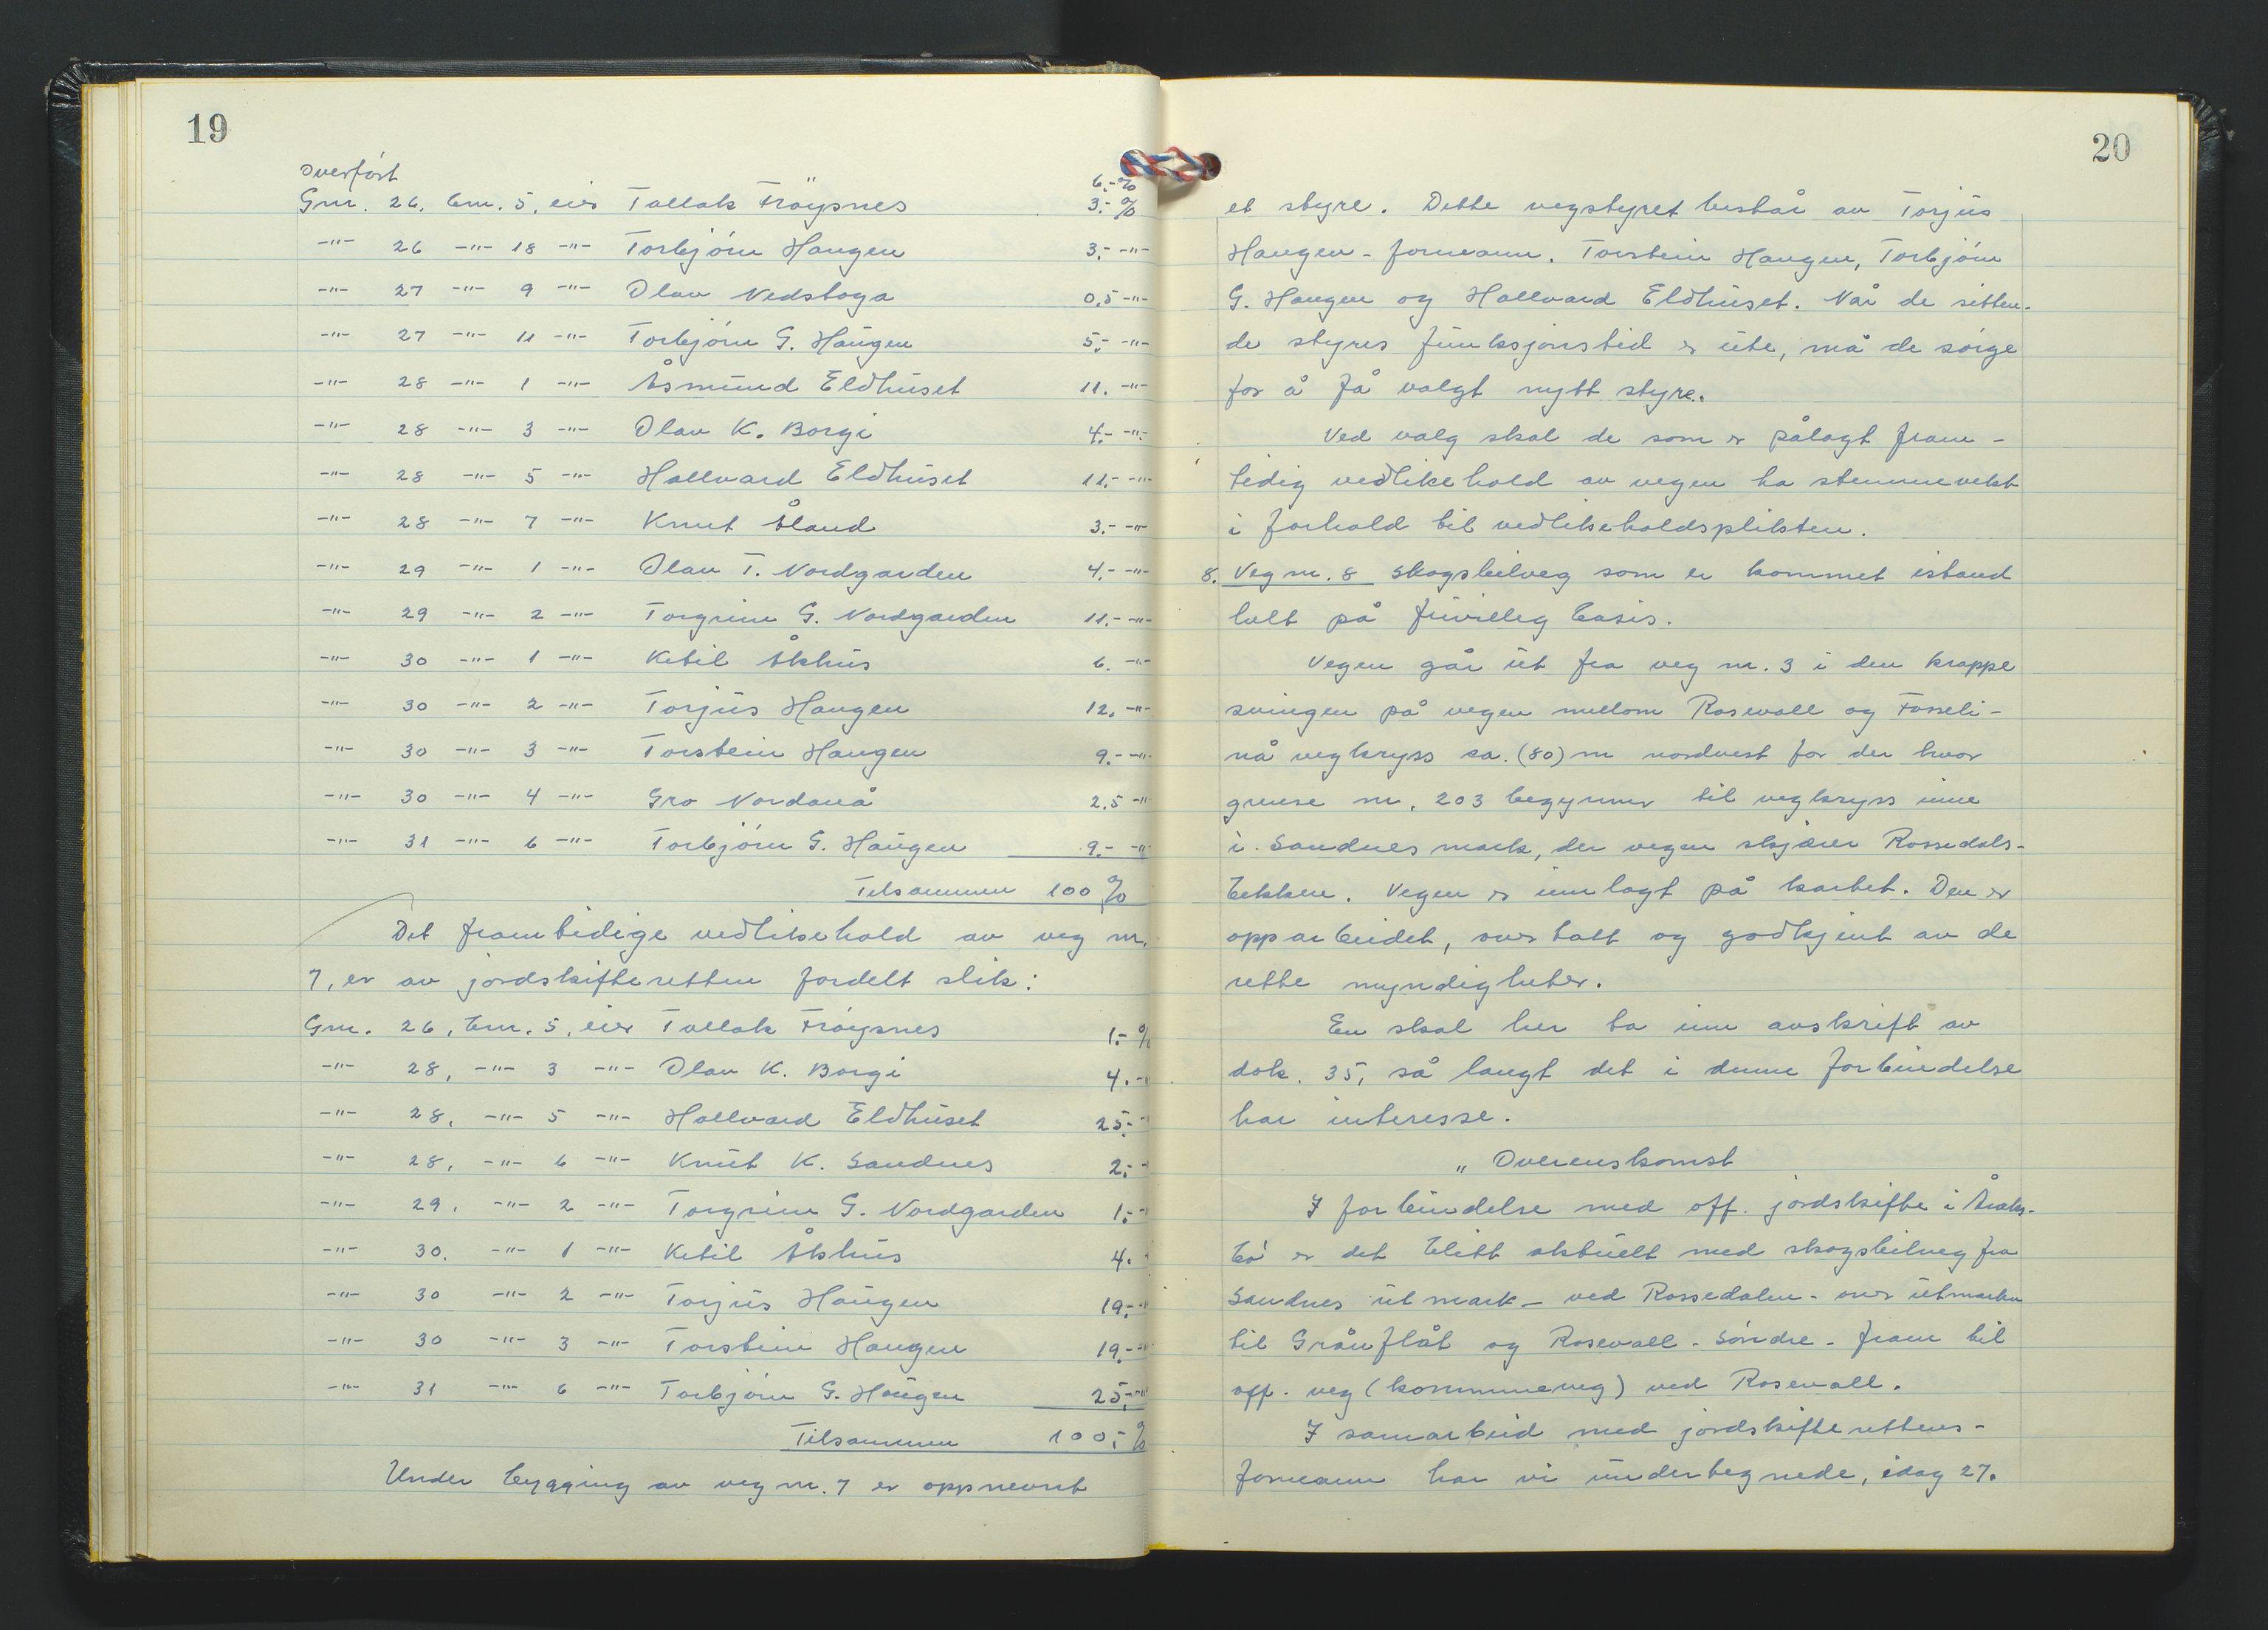 19
overført " 6.-%
Gnr. 26, bnr. 5, eier Tallak Frøysnes 3.-%
-"- 26 -"- 18 -"- Torbjørn Haugen 3.- -"-
-"- 27 -"- 9 -"- Olav Nedstoga 0,5 -"-
-"- 27 -"- 11 -"- Torbjørn G. Haugen 5.- -"-
-"- 28 -"- 1 -"- Åsmund Eldhuset 11. -"-
-"- 28 -"- 3 -"- Olav K. Borgi 4.- -"-
-"- 28 -"- 5 -"- Hallvard Eldhuset 11.- -"-
-"- 28 -"- 7 -"- Knut Åland 3.- -"-
-"- 29 -"- 1 -"- Olav T. Nordgarden 4.- -"-
-"- 29 -"- 2 -"- Torgrim G. Nordgarden 11.- -"-
-"- 30 -"- 1 -"- Ketil Åkhus 6. -"-
-"- 30 -"- 2 -"- Torjus Haugen 12. -"-
-"- 30 -"- 3 -"- Torstein Haugen 9.- -"-
-"- 30 -"- 4 -"- Gro Nordanå 2,5 -"-
-"- 31 -"- 6 -"- Torbjørn G. Haugen 9.- -"-
Tilsammen 100 %
Det framtidige vedlikehold av veg nr.
7, er av jordskifteretten fordelt slik:
Gnr. 26, bnr. 5, eier Tallak Frøysnes 1.- %
-"- 28, -"- 3 -"- Olav K. Borgi 4. -"
-"- 28, -"- 5 -"- Hallvard Eldhuset 25.- -"
-"- 28, -"- 6 -"- Knut K. Sandnes 2.- -"
-"- 29, -"- 2 -"- Torgrim G. Nordgarden 1.- -"
-"- 30. -"- 1 -"- Ketil Åkhus 4. -"
-"- 30 -"- 2 -"- Torjus Haugen 19.- -"
-"- 30 -"- 3 -"- Torstein Haugen 19.- -"
-"- 31 -"- 6 -"- Torbjørn G. Haugen 25.- -"
Tilsammen 100,- %
Under bygging av veg nr. 7 er oppnevnt
20
et styre. Dette vegstyret består av Torjus
Haugen - formann. Torstein Haugen, Torbjørn
G. Haugen og Hallvard Eldhuset. Når de sitten-
de styres funksjonstid er ute, må de sørge
for å få valgt nytt styre.
Ved valg skal de som er pålagt fram-
tidig vedlikehold av vegen ha stemmevekt
i forhold til vedlikeholdsplikten.
8. Veg nr. 8 skogsbilveg som er kommet istand
helt på frivilleg basis.
Vegen går ut fra veg nr. 3 i den krappe
svingen på vegen mellom Rosevall og Fosseli-
nå vegkryss ca. (80) m nordvest for der hvor
grense nr. 203 begynner til vegkryss inne
i Sandnes mark, der vegen skjærer Rossedals-
bekken. Vegen er innlagt på kartet. Den er
opparbeidet, overtatt og godkjent av de
rette myndigheter.
En skal her ta inn avskrift av
dok. 35, så langt det i denne forbindelse
har interesse.
" Overenskomst
I forbindelse med off. jordskifte i Åraks-
bø er det blitt aktuelt med skogsbilveg fra
Sandnes utmark - ved Rossedalen - over utmarka
til Grånflåt og Rosevall - Søndre - fram til
off. veg (kommuneveg) ved Rosevall.
I samarbeid med jordskifterettens-
formann har vi undertegnede, idag 27.